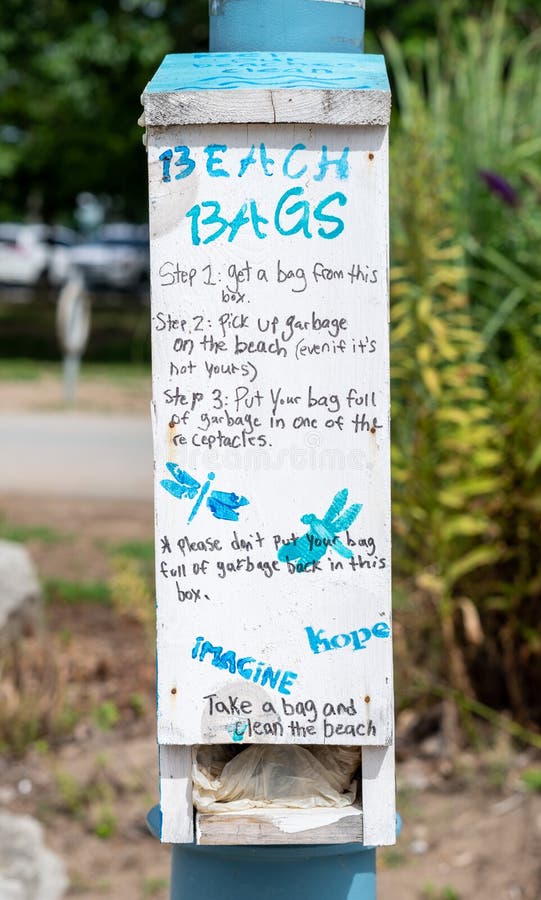 clean
BEACH
BAGS
Step 1: get a bag from this
box.
Step 2: Pick up garbage
on the beach (even if it's
not yours)
Step 3: Put Your bag full
of garbage in one of the
receptacles.
* please don't put your bag
full of garbage back in this
box.
hope
IMAGINE
Take a bag and
clean the beach